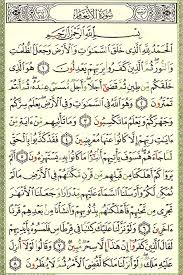 سورة الأنعام
بسم الله الرحمن الرحيم
الحمد لله الذي خلق السموات والأرض وجعل الظلمت
والنور ثم الذين كفروا بربهم يعدلون ١ هو الذي
خلقكم من طين ثم قضى أجلا وأجل مسمى عنده ثم أنتم
تمترون ٢ وهو الله في السموات وفي الأرض يعلم سركم
وجهركم ويعلم ما تكسبون ٣ وما تأتيهم من ءاية من ءايت
ربهم إلا كانوا عنها معرضين ٤ فقد كذبوا بالحق
لما جاءهم فسوف يأتيهم أنبؤا ما كانوا به يستهزءون ٥
ألم يروا كم أهلكنا من قبلهم من قرن مكنهم في الأرض ما لم
نمكن لكم وأرسلنا السماء عليهم مدرارا وجعلنا الأنهر
تجري من تحتهم فأهلكنهم بذنوبهم وأنشأنا من بعدهم قرنا
ءاخرين ٦ ولو نزلنا عليك كتبا في قرطاس فلمسوه بأيديهم
لقال الذين كفروا إن هذا إلا سحر مبين ٧ وقالوا لولا أنزل
عليه ملك ولو أنزلنا ملكا لقضي الأمر ثم لا ينظرون ٨